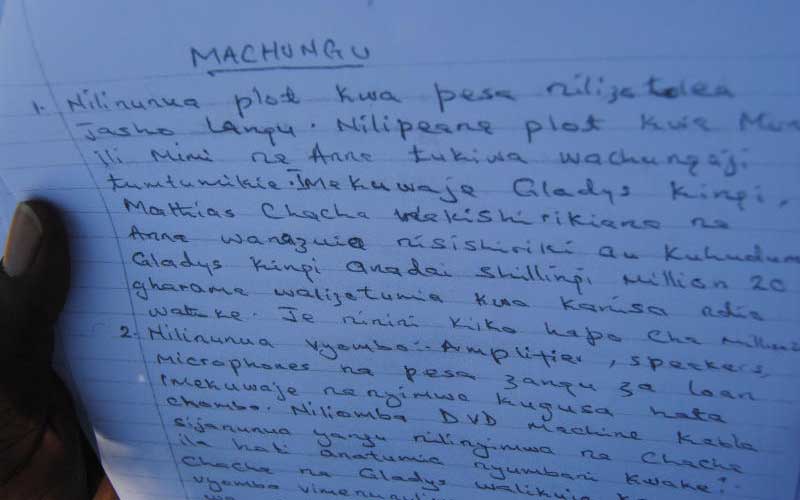 MACHUNGU
1. Nilinunua plot kwa pesa nilizotolea
Jasho langu. Nilipeane plot kwa
ili mimi na Anne tukiwa wachungaji
tumtumikie. Imekuwaje Gladys Kingi,
Mathias Chacha wakishirikiana na
Anne wanazuia nisishiriki au kuhudum
Gladys Kingi anadai shillingi million 20
gharama walizotumia kwa kanisa ndio
watoke. Je ninini kiko hapo cha
2. Nilinunua vyombo:- Amplifier, speakers,
Microphones na pesa zangu za loan
imekuwaje nanyimwa kugusa hata
chombo. Niliomba DVD Machine kabla
sijanunua yangu nilinyimwa na Chacha
ila hati anatumia nyumbani kwake?
Chacha na Gladys walikuja
vyombo